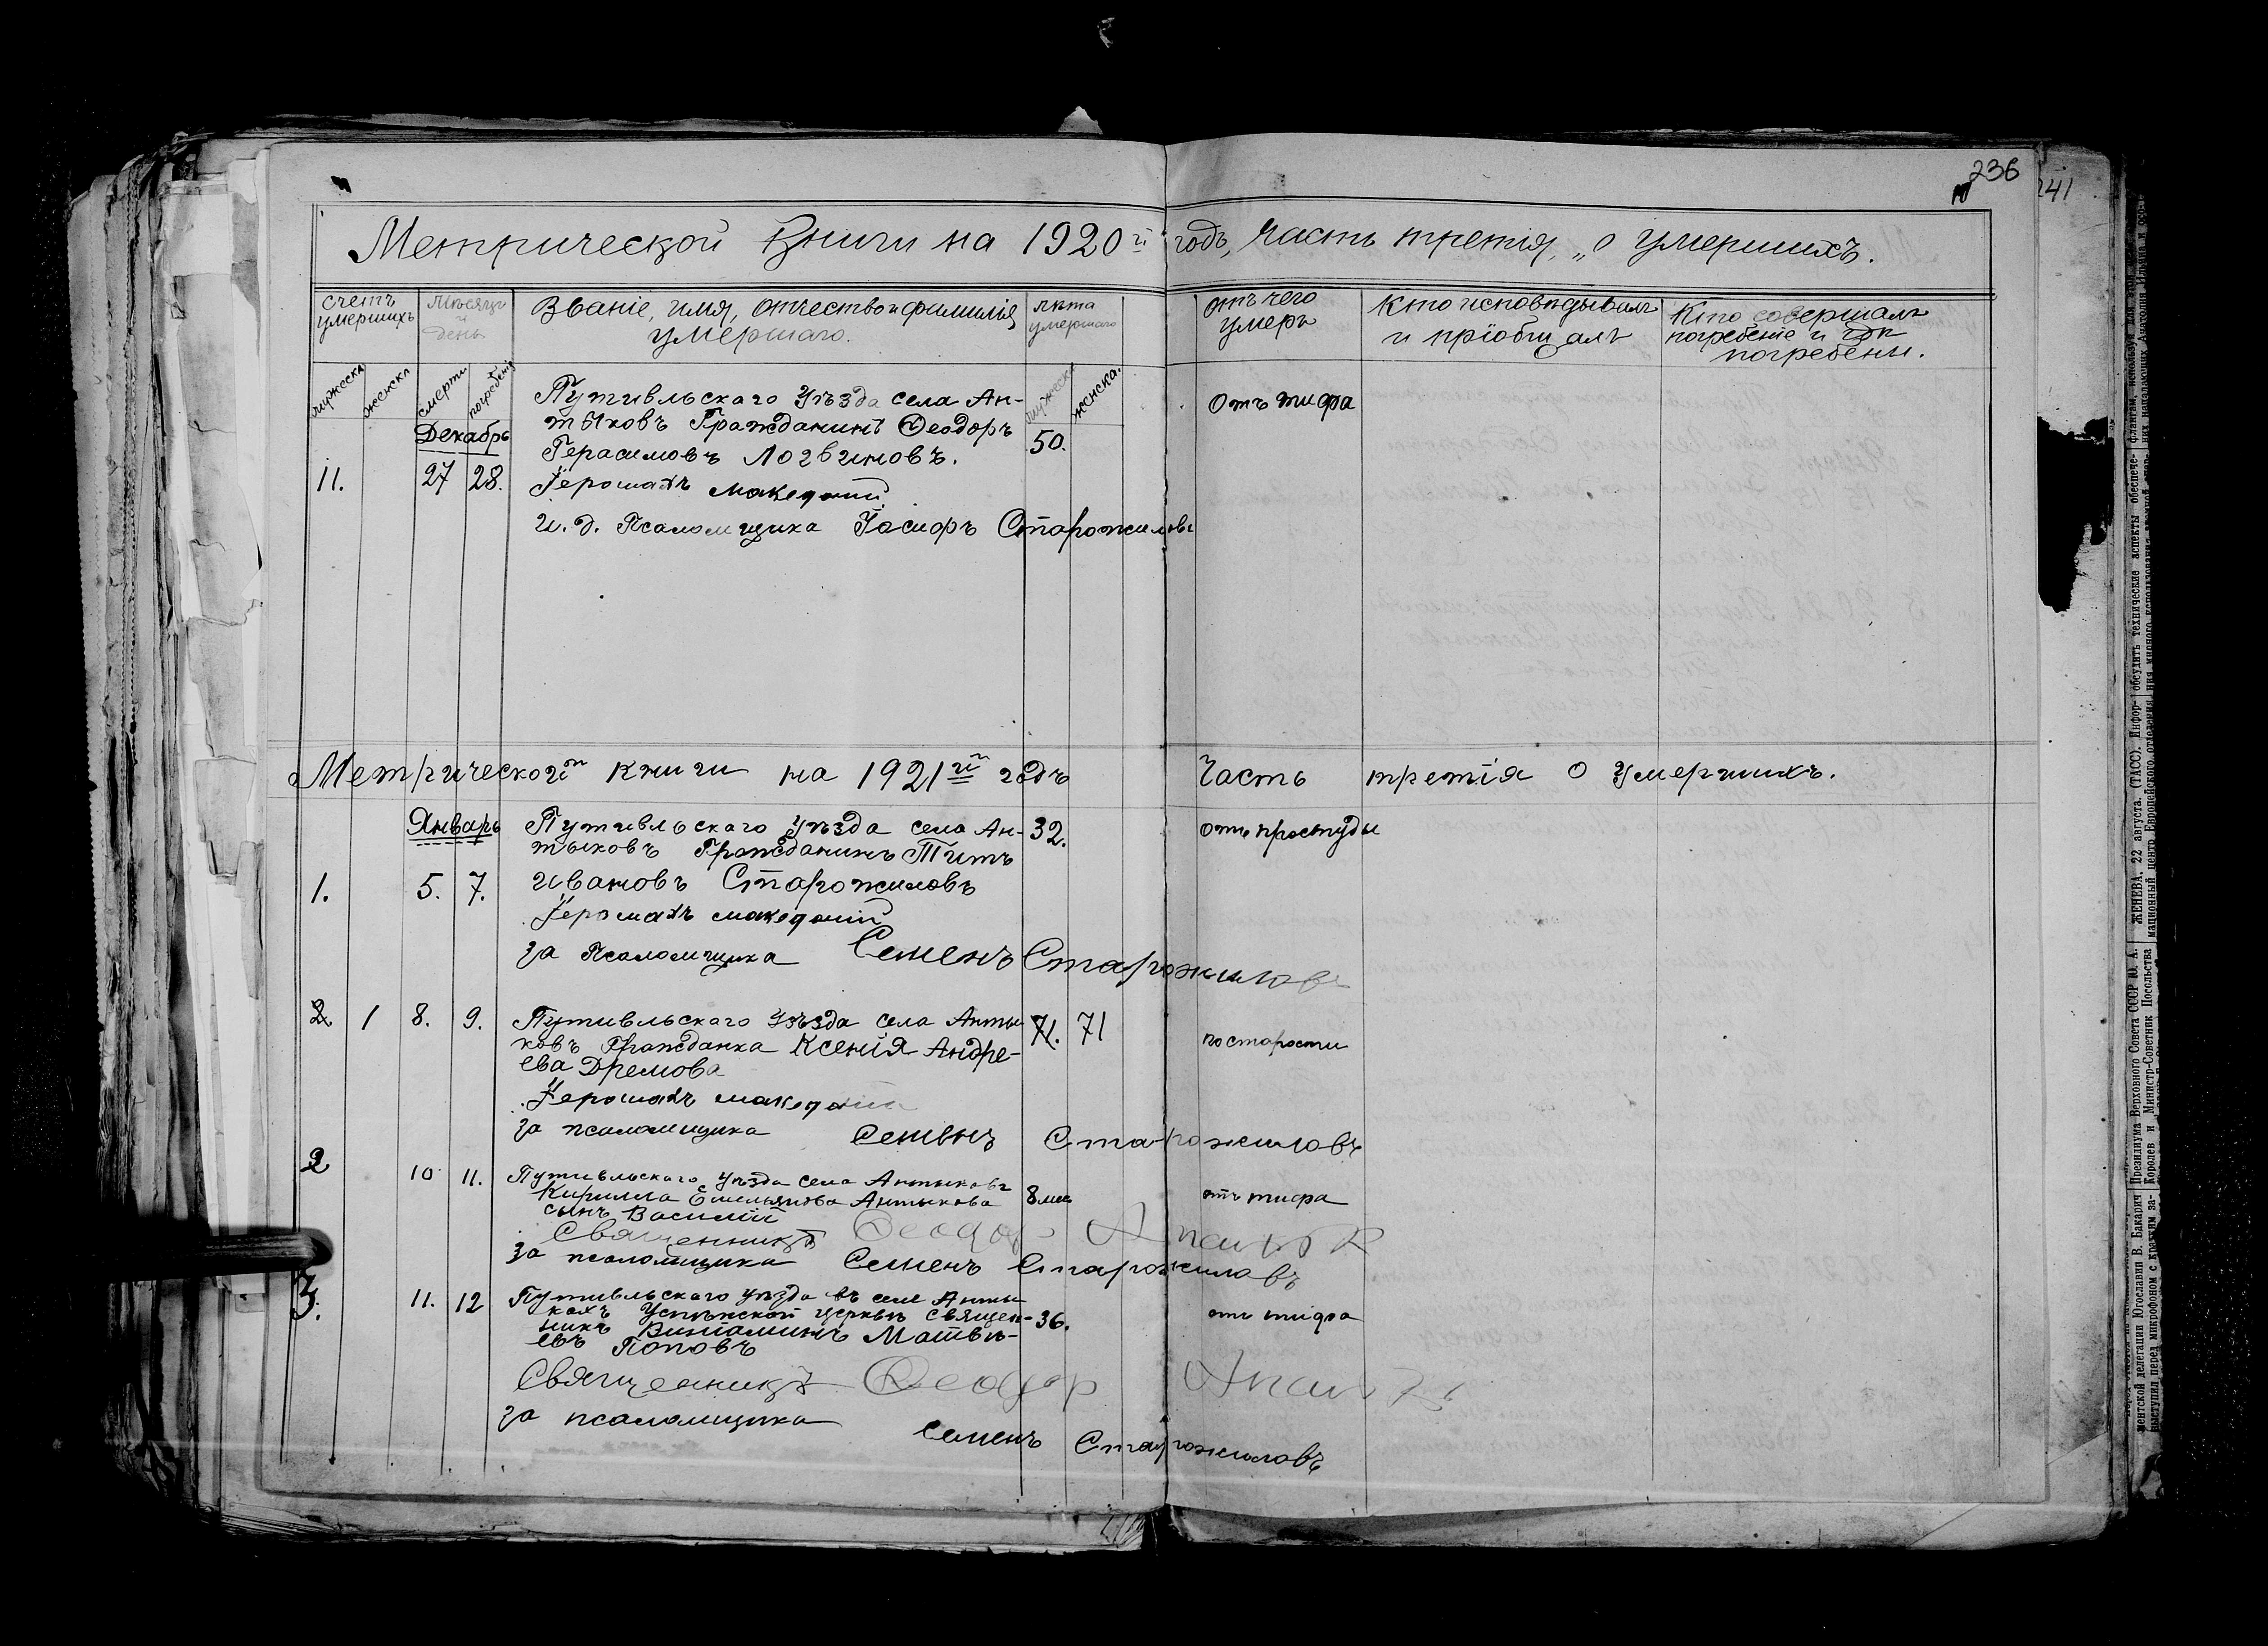 236
241
Метрической Книги на 1920 й годъ, Часть третія, „о умершихъ.
счетъ умершихъ
Мѣсяцъ и день
Званіе, имя, отчество и фамилія умершаго.
лѣта умершаго
отъ чего умеръ
Кто исповѣдывалъ и пріобщалъ
Кто совершалъ погребеніе и гдѣ погребены.
мужеска
женска
смерти
погребенія
мужеска
женска.
Декабрь
11.
27
28.
Путивльскаго Уѣзда села Ан-
тыковъ Гражданинъ Ѳеодоръ
Герасимовъ Логвиновъ.
50.
Отъ тифа
Іеромахъ Македоній
И. д. Псаломщика Іосифъ Старожиловъ
Метрической книги на 1921 й годъ Часть третія о Умершихъ.
Январь
1.
5.
7.
Путивльскаго Уѣзда села Ан-
тыковъ Гражданинъ Титъ
Ивановъ Старожиловъ
32.
отъ простуды
Іеромахъ Македоній
за Псаломщика Семенъ Старожиловъ
2
1
8.
9.
Путивльскаго Уѣзда села Анты-
ковъ Гражданка Ксенія Андре-
ева Дремова
71.
71
по старости
Іеромахъ Македоній
за псаломщика Семенъ Старожиловъ
2
10
11.
Путивльскаго Уѣзда села Антыковъ
Кирилла Емельянова Антыкова
сынъ Василій
8 мес
отъ тифа
Священникъ Ѳеодоръ
за псаломщика Семенъ Старожиловъ
3.
11.
12
Путивльскаго уѣзда въ селе Анты-
кахъ Успѣнской церкви Священ-
никъ Виніаминъ Матвѣ-
евъ Поповъ
36.
отъ тифа
Священникъ Ѳеодор
за псаломщика
Семенъ Старожиловъ
ЖЕНЕВА, 22 августа. (ТАСС).